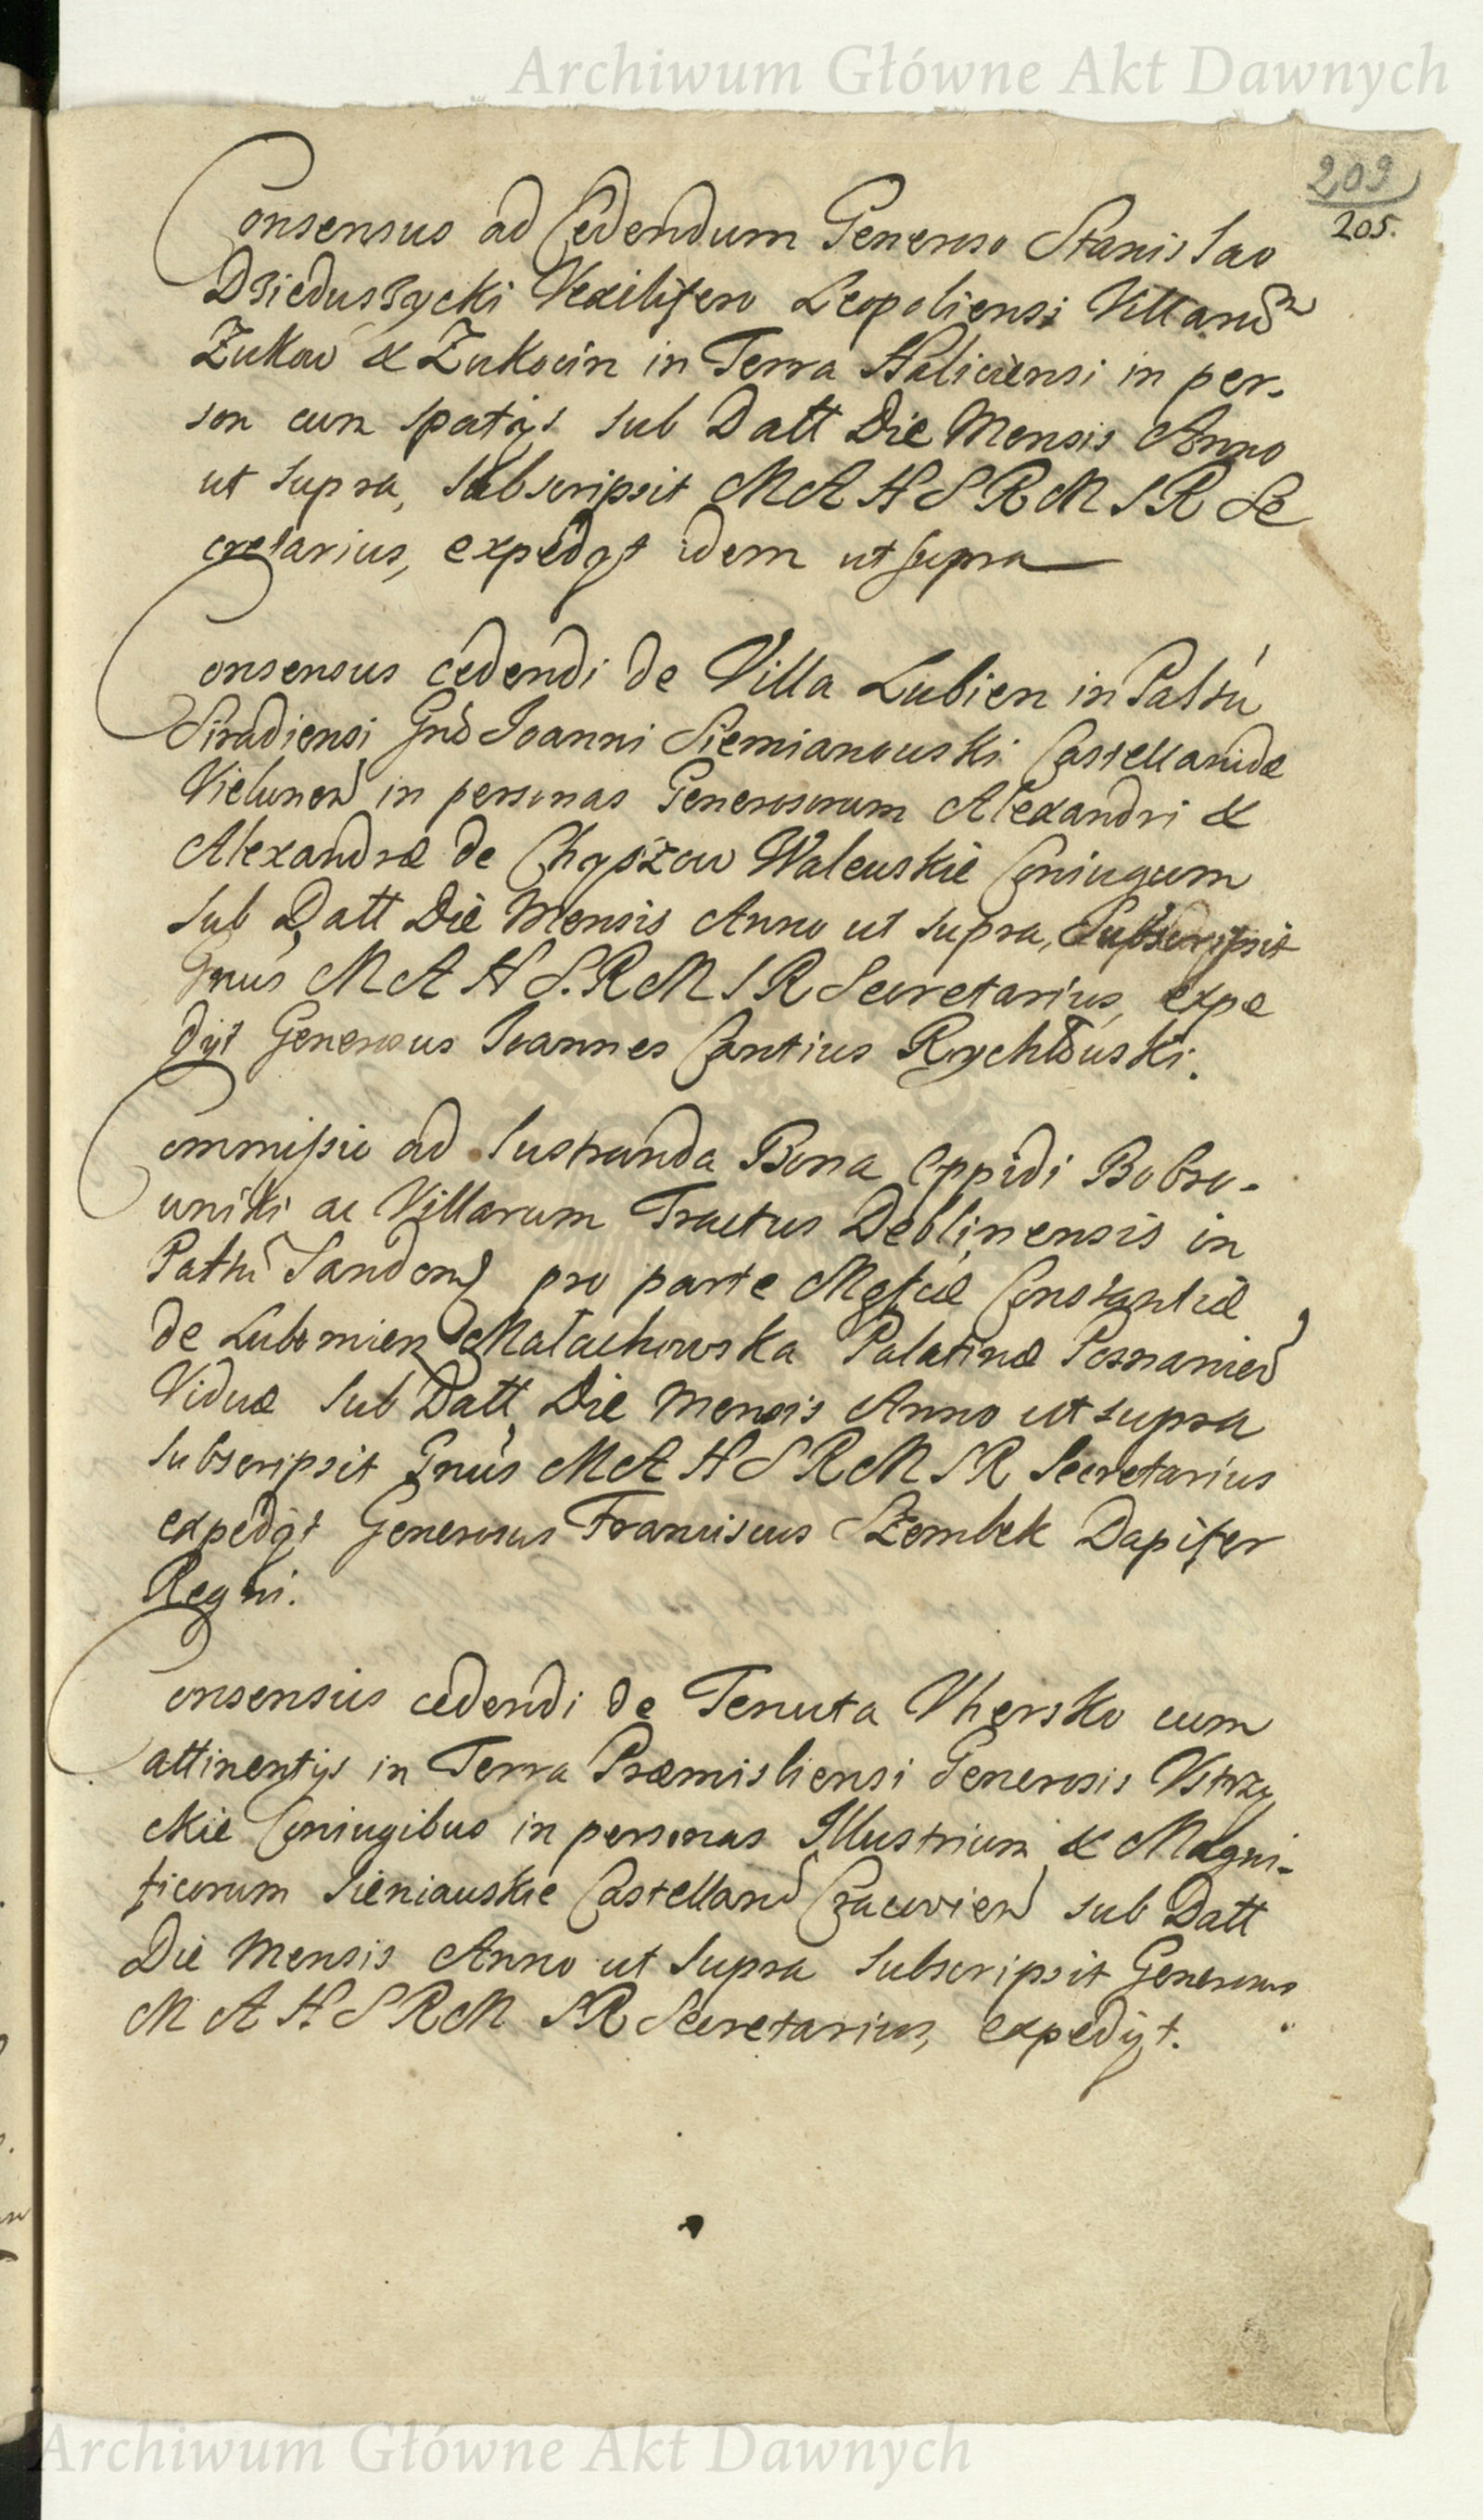 Archiwum Główne Akt Dawnych
209
205.
Consensus ad Cedendum Generoso Stanislao
Dzieduszycki Vexilifero Leopoliensi Villarum
Zukow & Zukocin in Terra Haliciensi in per-
son cum spatijs sub Datt Die Mensis Anno
ut supra, subscripsit M A H S R M S R Se
cretarius, expedyt idem ut supra
Consensus cedendi de Villa Lubien in Paltu
Siradiensi Gnd Joanni Siemianowski Castellanidæ
Vielunen in personas Generosorum Alexandri &
Alexandræ de Chyszow Walewskie Coniugum
sub Datt Die Mensis Anno ut supra, Subscripsit
Gnus M A H S. R M S R Secretarius, expe
dyt Generosus Joannes Cantius Rychlowski.
Commissio ad lustranda Bona Oppidi Bobro-
wniki ac Villarum Tractus Deblinensis in
Pattu Sandom pro parte Mgfcæ Constantiæ
de Lubomierz Małachowska Palatinæ Posnanien
Viduæ sub Datt Die Mensis Anno ut supra
subscripsit Gnus M A H S R M S R Secretarius
expedyt Generosus Franciscus Szembek Dapifer
Regni.
Consensus cedendi de Tenuta Uhersko cum
attinentijs in Terra Præmisliensi Generosis Ustrzy
ckie Coniugibus in personas Illustrium & Magni-
ficorum Sieniawskie Castelland Cracovien sub Datt
Die Mensis Anno ut supra subscripsit Generosus
M A H S R M S R Secretarius, expedyt.
Archiwum Główne Akt Dawnych